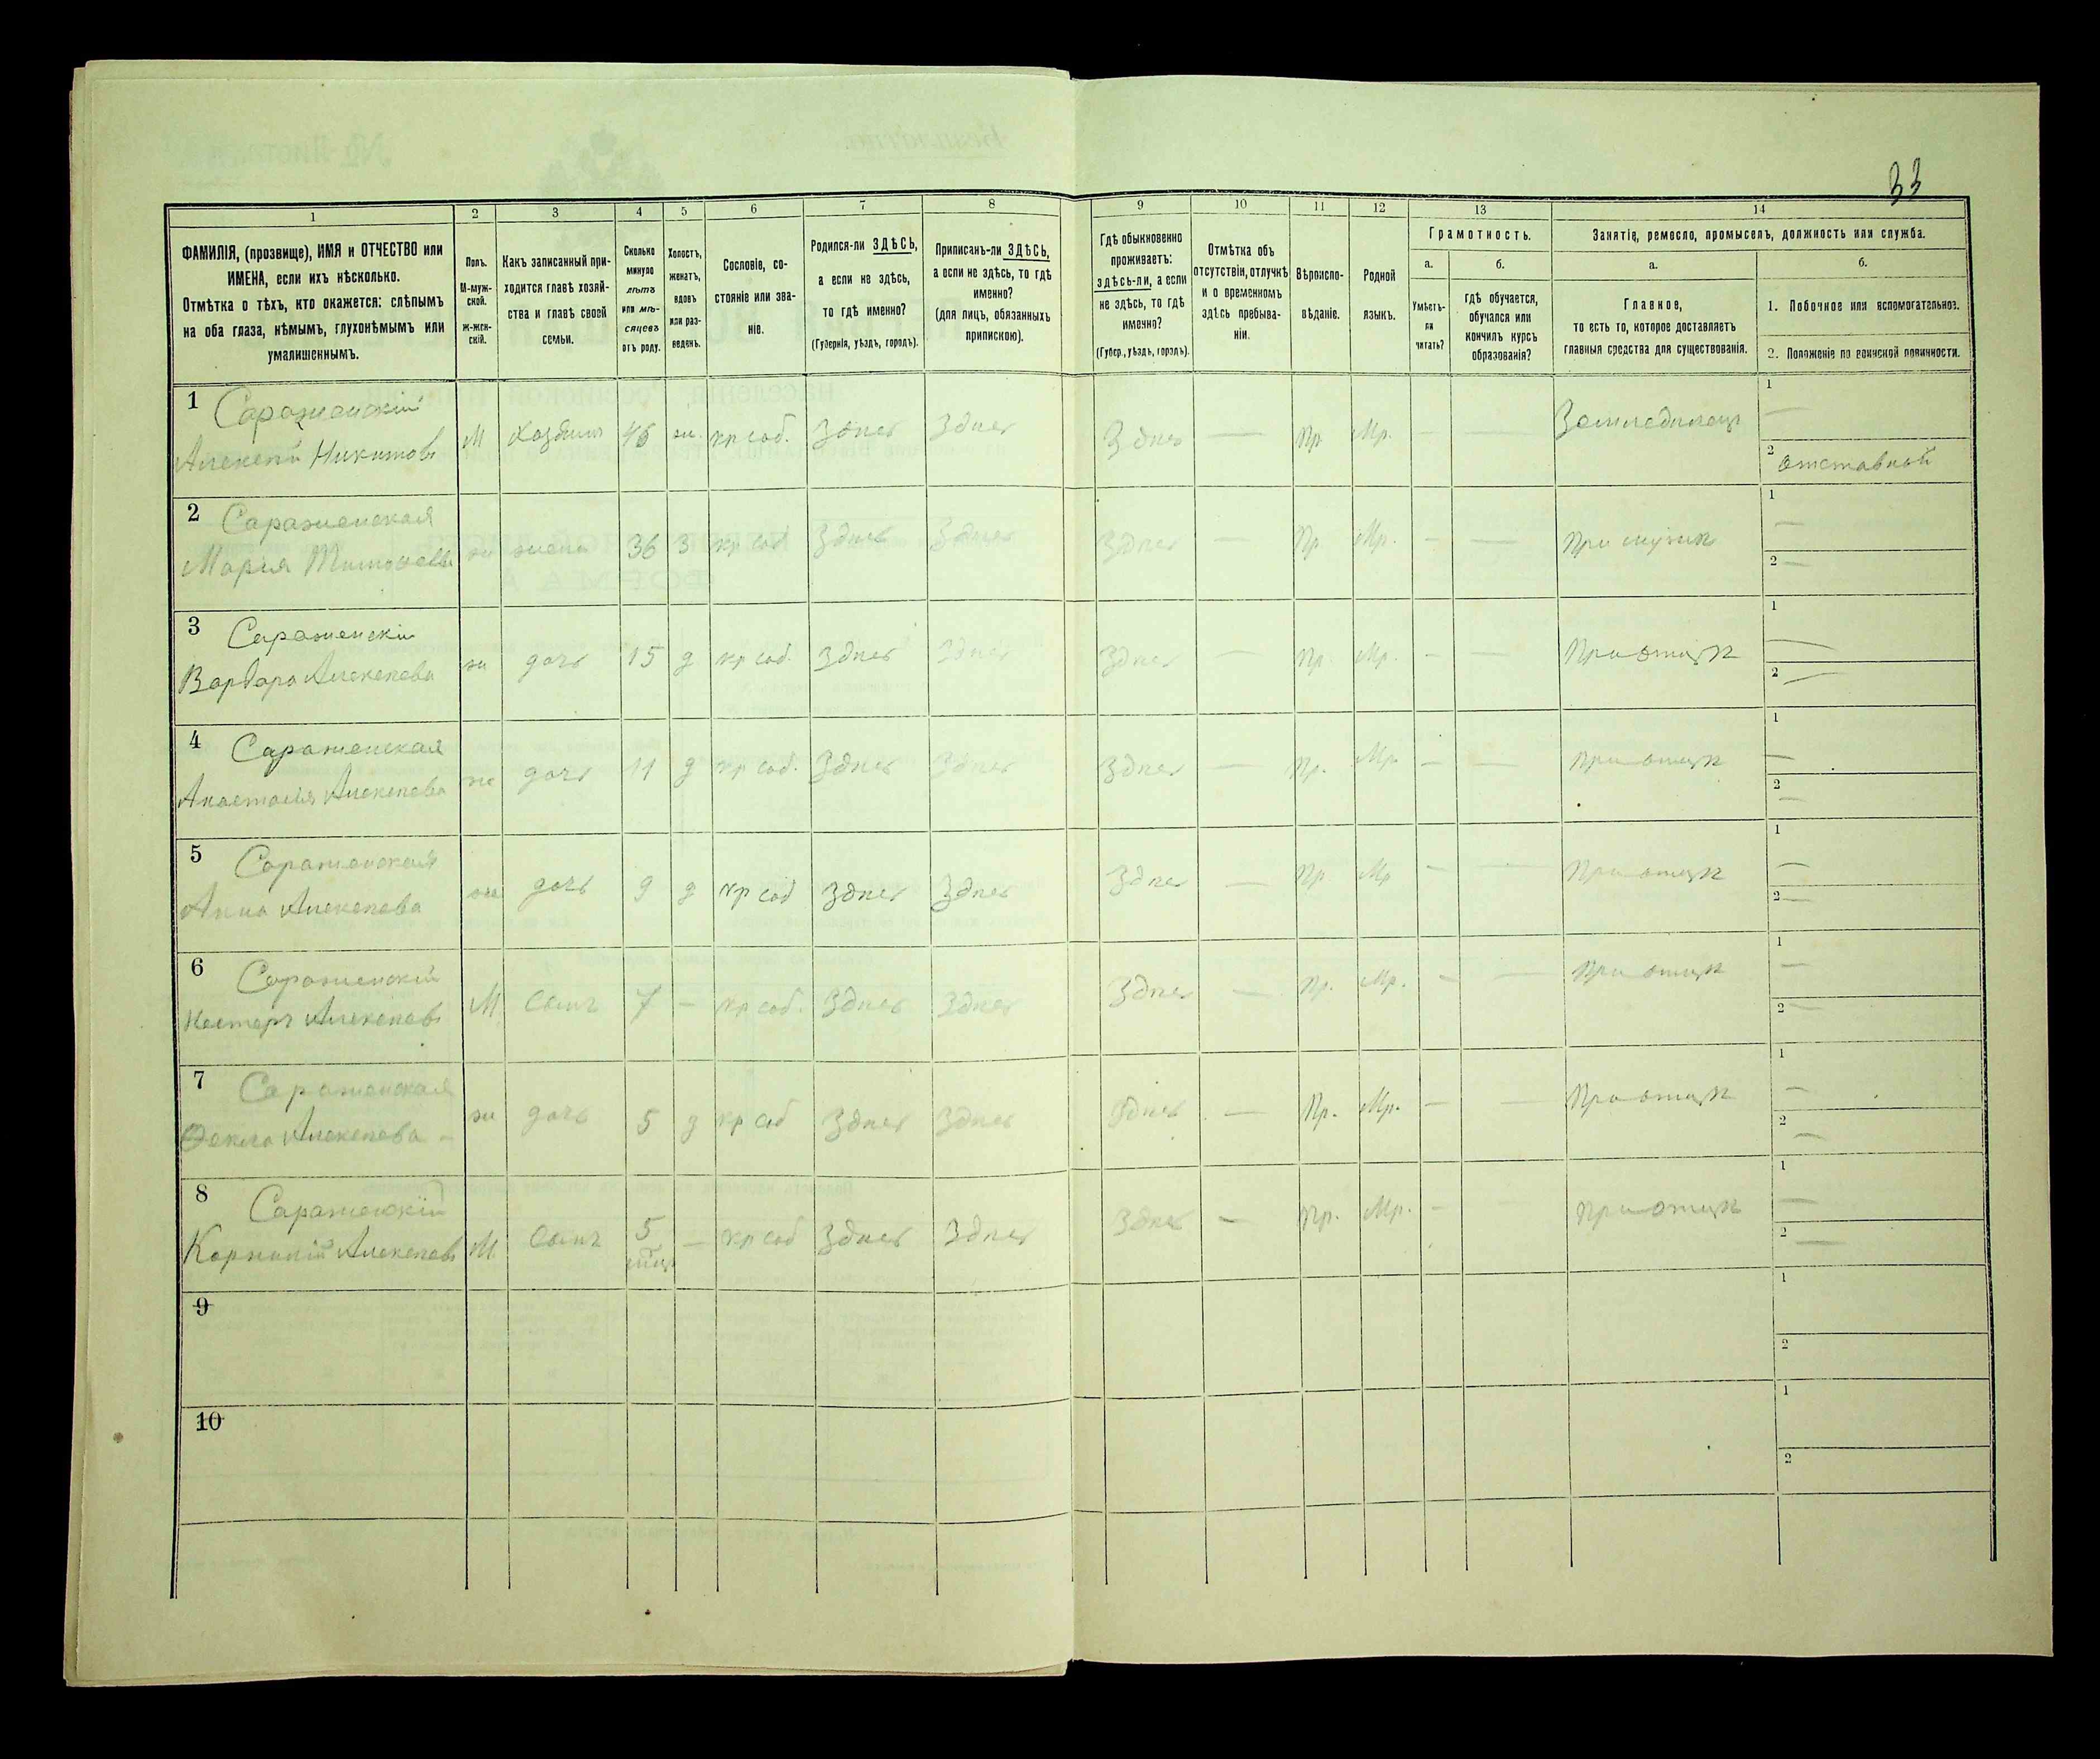 33
1 2 3 4 5 6 7 8 9 10 11 12 13 14
ФАМИЛІЯ, (прозвище), ИМЯ и ОТЧЕСТВО или
ИМЕНА, если ихъ нѣсколько.
Отмѣтка о тѣхъ, кто окажется: слѣпымъ
на оба глаза, нѣмымъ, глухонѣмымъ или
умалишеннымъ.
Полъ.
М-муж-
ской.
Ж-жен-
скій.
Какъ записанный при-
ходится главѣ хозяй-
ства и главѣ своей
семьи.
Сколько
минуло
лѣтъ
или мѣ-
сяцевъ
отъ роду.
Холостъ,
женатъ,
вдовъ
или раз-
веденъ.
Сословіе, со-
стояніе или зва-
ніе.
Родился-ли ЗДѢСЬ,
а если не здѣсь,
то гдѣ именно?
(Губернія, уѣздъ, городъ).
Приписанъ-ли ЗДѢСЬ,
а если не здѣсь, то гдѣ
именно?
(для лицъ, обязанныхъ
припискою).
Гдѣ обыкновенно
проживаетъ:
здѣсь-ли, а если
не здѣсь, то гдѣ
именно?
(Губер., уѣздъ, городъ).
Отмѣтка объ
отсутствіи, отлучкѣ
и о временномъ
здѣсь пребыва-
ніи.
Вѣроиспо-
вѣданіе.
Родной
языкъ.
Грамотность.
а.
Умѣетъ-
ли
читать?
б.
гдѣ обучается,
обучался или
кончилъ курсъ
образованія?
Занятіе, ремесло, промыселъ, должность или служба.
а.
Главное,
то есть то, которое доставляетъ
главныя средства для существованія.
б.
1. Побочное или вспомогательное.
2. Положеніе по воинской повинности.
1 Сараженскій
Алексѣй Никитовъ М Хозяинъ 46 ж. кр соб. Здѣсь Здѣсь Здѣсь — Пр. Мр. — — Земледѣлецъ 1 —
2 отставной
2 Сараженская
Марія Тимоѳеева ж жена 36 З кр соб Здѣсь Здѣсь Здѣсь — Пр. Мр. — — При мужѣ 1 —
2 —
3 Сараженскі
Варвара Алексѣева ж дочь 15 д кр соб. Здѣсь Здѣсь Здѣсь — Пр. Мр. — — При отцѣ 1 —
2 —
4 Сараженская
Анастасія Алексѣева ж дочь 11 д кр соб. Здѣсь Здѣсь Здѣсь — Пр. Мр. — — При отцѣ 1 —
2 —
5 Сараженская
Анна Алексѣева ж дочь 9 д кр соб Здѣсь Здѣсь Здѣсь — Пр. Мр — — При отцѣ 1 —
2 —
6 Сараженскій
Нестеръ Алексѣевъ М Сынъ 7 — кр соб. Здѣсь Здѣсь Здѣсь — Пр. Мр. — — При отцѣ 1 —
2 —
7 Сараженская
Ѳекла Алексѣева — ж дочь 5 д кр соб Здѣсь Здѣсь Здѣсь — Пр. Мр. — — При отцѣ 1 —
2 —
8 Сараженскій
Корнилій Алексѣевъ М Сынъ 5 — кр соб Здѣсь Здѣсь Здѣсь — Пр. Мр. — — При отцѣ 1 —
2 —
9 1
2
10 1
2